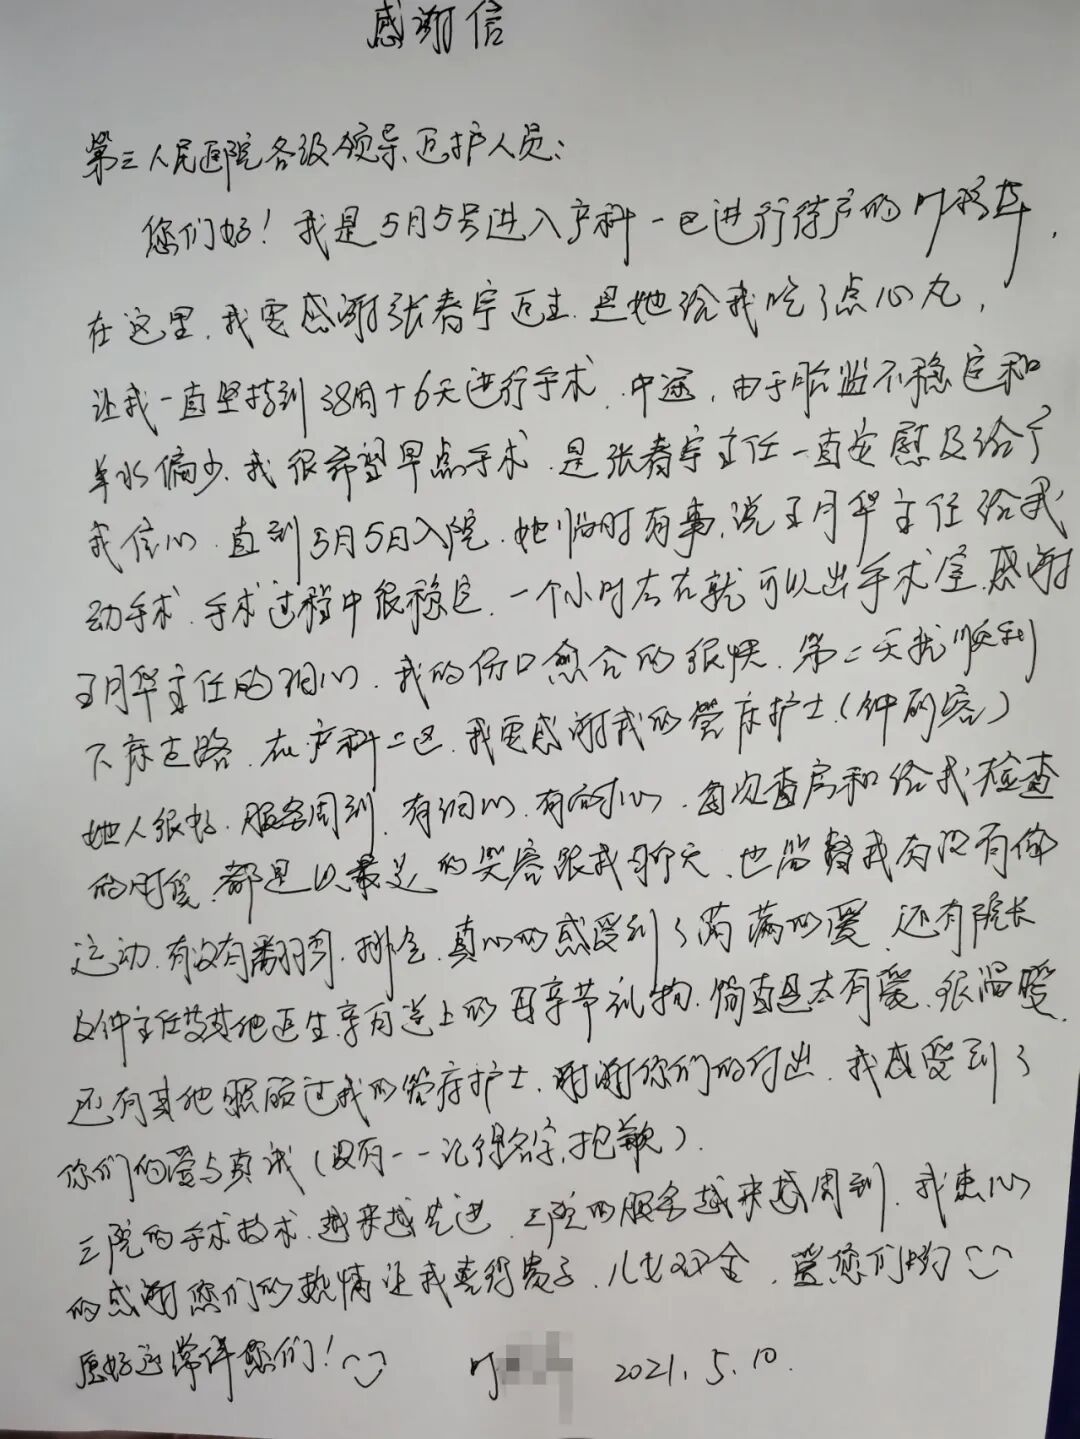 感谢信
第三人民医院各级领导、医护人员：
您们好！我是5月5号进入产科一区进行待产的叶
在这里，我要感谢张春宇医生，是她给我吃了点心丸，
让我一直坚持到38周+6天进行手术，中途，由于胎监不稳定和
羊水偏少，我很希望早点手术，是张春宇主任一直安慰及给了
我信心，直到5月5日入院，她临时有事，说王月华主任给我
动手术，手术过程中很稳定，一个小时左右就可以出手术室，感谢
王月华主任的细心，我的伤口愈合的很快，第二天就顺利
下床走路，在产科二区，我要感谢我的管床护士（钟）
她人很好，服务周到，有细心，有耐心，每次查房和给我检查
的时候，都是以最美的笑容跟我聊天，也监督我有没有做
运动，有没有翻身，排气，真心的感受到了满满的爱，还有院长
及钟主任及其他医生亲自送上的母亲节礼物，简直是太有爱，很温暖，
还有其他照顾过我的管床护士，谢谢你们的付出，我感受到了
你们的爱与真诚（没有一一记得名字，抱歉）．
三院的手术技术，越来越先进，三院的服务越来越周到，我衷心
的感谢您们的热情让我喜得贵子，儿女双全，爱您们哟
愿好运常伴您们！ 叶 2021.5.10.